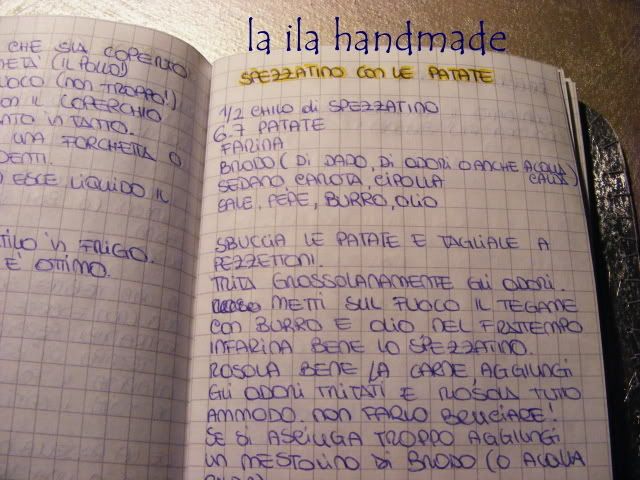 la ila handmade
CHE SIA COPERTO
(IL POLLO)
(NON TROPPO!)
IL COPERCHIO
TANTO.
UNA FORCHETTA O
ESCE LIQUIDO IL
IN FRIGO.
E' OTTIMO.
SPEZZATINO CON LE PATATE
1/2 CHILO di SPEZZATINO
6-7 PATATE
FARINA
BRODO (DI DADO, DI ODORI O ANCHE ACQUA
CALDA)
SEDANO, CAROTA, CIPOLLA
SALE, PEPE, BURRO, OLIO
SBUCCIA LE PATATE E TAGLIALE A
PEZZETTONI.
TRITA GROSSOLANAMENTE GLI ODORI.
METTI SUL FUOCO IL TEGAME
CON BURRO E OLIO NEL FRATTEMPO
INFARINA BENE LO SPEZZATINO.
ROSOLA BENE LA CARNE, AGGIUNGI
GLI ODORI TRITATI E ROSOLA TUTTO
AMMODO. NON FARLO BRUCIARE!
SE SI ASCIUGA TROPPO AGGIUNGI
UN MESTOLINO DI BRODO (O ACQUA